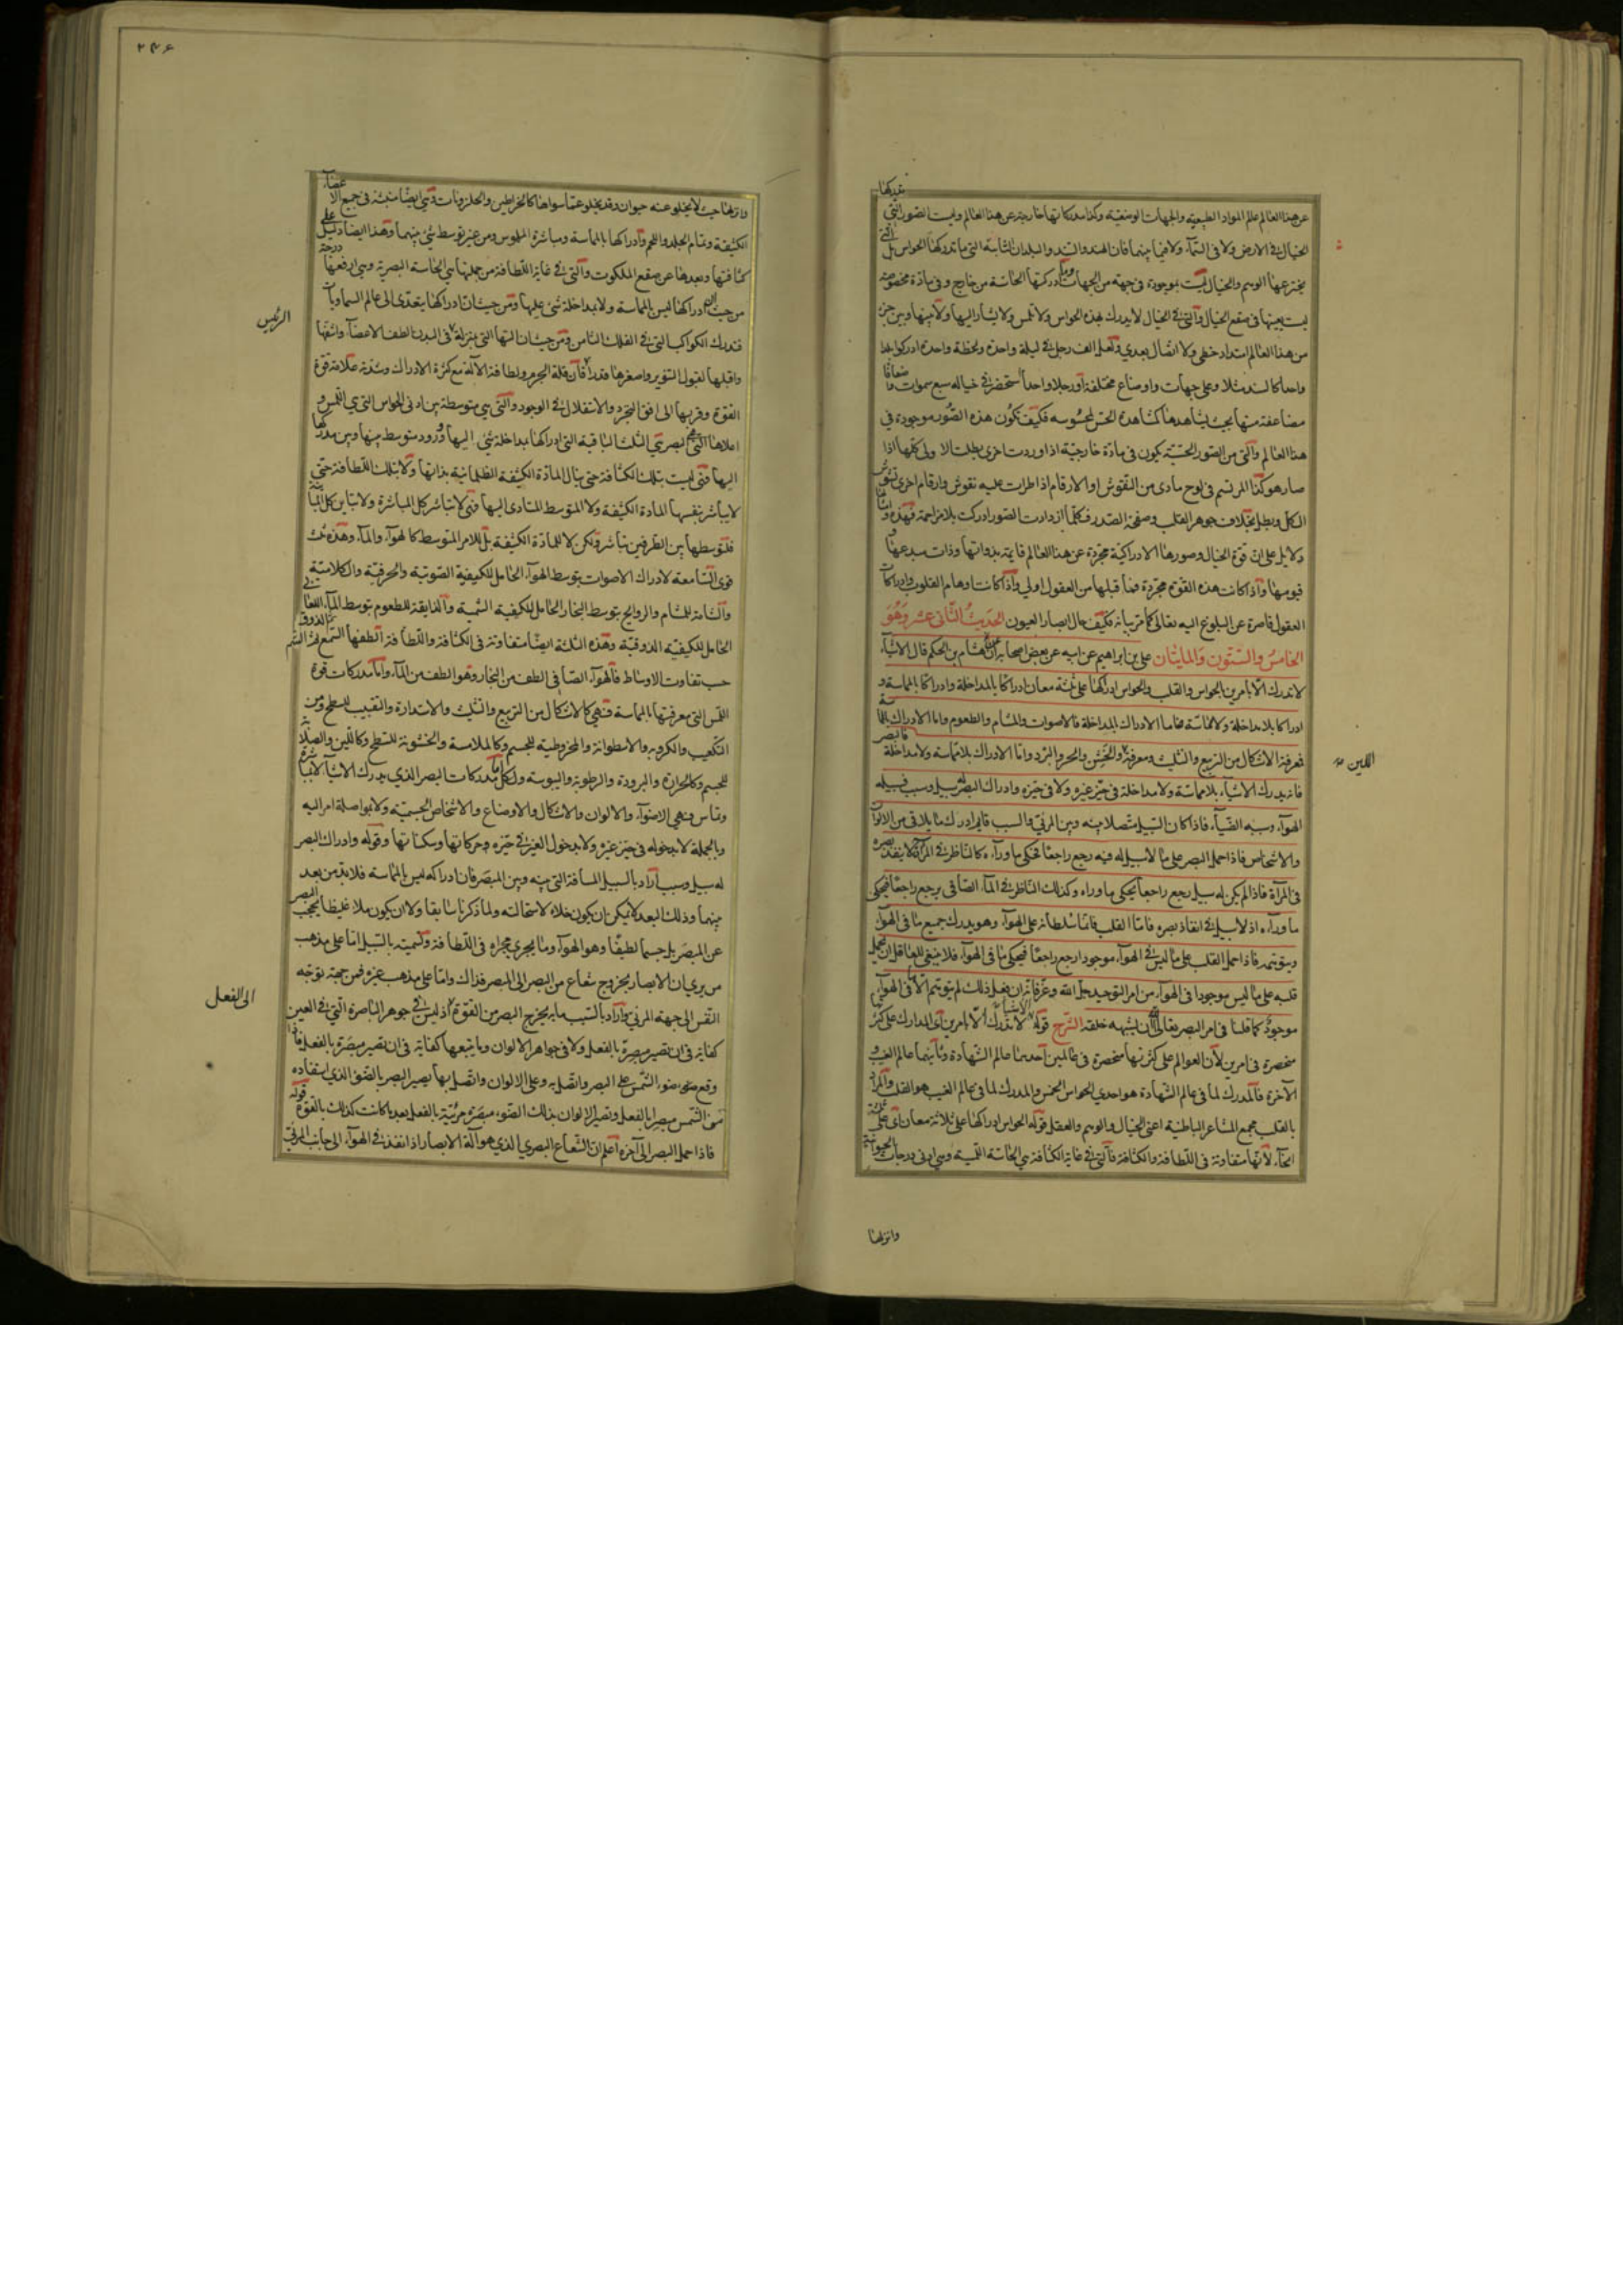 عن هذا العالم عالم المواد الطبيعية والجهات الوضعية وكذا مدركاتها خارجة عن هذا العالم وليست الصور التي يدركها
الخيال في الارض ولا في السماء ولا فيما بينهما فان الهند والسند والبلدان الثابتة التي ما تدركها الحواس بل التي
يخترعها الوهم والخيال ليست بموجودة في جهة من الجهات ادركتها الحاسة من خارج وفي مادة مخصوصة
ليست بعينها في صقع الخيال والتي في الخيال لا يدرك بهذه الحواس ولا تلمس ولا يشار اليها ولا بينها وبين جزء
من هذا العالم امتداد خطي ولا اتصال بعدي ولعل الف رجل في ليلة واحدة ولحظة واحدة ادركوا بلدا
واحدا كالسند مثلا وعلى جهات واوضاع مختلفة او رجلا واحدا استحضر في خياله سبع سموات واضعافا
مضاعفة منها بحيث يشاهدها كمشاهدة الحس لمحسوسه فكيف تكون هذه الصور موجودة في
هذا العالم والتي من الصور الحسية يكون في مادة خارجية اذا وردت اخرى بطلت الاولى كلها اذا
صار هو كذا المرتسم في لوح مادي من النقوش او الارقام اذا طرات عليه نقوش وارقام اخرى تشوش
الكل وبطل بخلاف جوهر القلب وصفحة الصدر فكلما ازدادت الصور ادركت بلا مزاحمة فهذه وامثالها
دلايل على ان قوة الخيال وصورها الادراكية مجردة عن هذا العالم قايمة بذواتها وذات مبدعها و
قيومها واذا كانت هذه القوة مجردة فما قبلها من العقول اولى واذا كانت اوهام القلوب وادراكات
العقول قاصرة عن البلوغ اليه تعالى كما مر بيانه فكيف حال ابصار العيون الحديث الثاني عشر وهو
الخامس والستون والمايتان علي بن ابراهيم عن ابيه عن بعض اصحابه عن هشام بن الحكم قال الاشياء
لا تدرك الا بامرين الحواس والقلب والحواس ادراكها على ثلثة معان ادراكا بالمداخلة وادراكا بالمماسة و
ادراكا بلا مداخلة ولا مماسة فاما الادراك بالمداخلة فالاصوات والمشام والطعوم واما الادراك بالمماسة
فمعرفة الاشكال من التربيع والتثليث ومعرفة والخشن والحر والبرد واما الادراك بلا مماسة ولا مداخلة فالبصر
اللين
فانه يدرك الاشياء بلا مماسة ولا مداخلة في حيز غيره ولا في حيزه وادراك البصر له سبيل وسبب فسبيله
الهواء وسببه الضياء فاذا كان السبيل متصلا بينه وبين المرئي والسبب قايم ادرك ما يلاقي من الالوان
والاشخاص فاذا حمل البصر على ما لا سبيل له فيه رجع راجعا فحكى ما وراءه كالناظر في المرآة لا ينفذ بصره
في المرآة فاذا لم يكن له سبيل رجع راجعا يحكي ما وراه وكذلك الناظر في الماء الصافي يرجع راجعا فيحكي
ما وراءه اذ لا سبيل له في انفاذ بصره فاما القلب فانما سلطانه على الهواء وهو يدرك جميع ما في الهواء
ويتوهمه فاذا حمل القلب على ما ليس في الهواء موجودا رجع راجعا فيحكي ما في الهواء فلا ينبغي للعاقل ان يحمل
قلبه على ما ليس موجودا في الهواء من امر التوحيد جل الله وعز فانه ان فعل ذلك لم يتوهم الا ما في الهواء
موجود كما قلنا في امر البصر تعالى الله ان يشبهه خلقه الشرح قوله الاشياء لا تدرك الا بامرين اي المدارك على كثرتها
منحصرة في امرين لان العوالم على كثرتها منحصرة في عالمين احدهما عالم الشهادة وثانيهما عالم الغيب و
الآخرة فالمدرك لما في عالم الشهادة هو احدى الحواس الخمس والمدرك لما في عالم الغيب هو القلب والمراد
بالقلب مجمع المشاعر الباطنية اعني الخيال والوهم والعقل قوله الحواس ادراكها على ثلاثة معان اي على ثلثة
انحاء لانها متفاوتة في اللطافة والكثافة فالتي في غاية الكثافة هي الحاسة اللمسية وهي ادنى درجات الحيوانية
وانزلها
٢٤٦
وانزلها حيث لا يخلو عنه حيوان وقد يخلو عما سواها كالخراطين والحلزونات وهي ايضا منبثة في جميع الاعضاء
الكثيفة وتمام الجلد واللحم وادراكها بالمماسة ومباشرة الملموس ومن غير توسط شيء بينهما وهذا ايضا دليل على
كثافتها وبعدها عن صقع الملكوت والتي في غاية اللطافة من جملتها هي الحاسة البصرية وهي ارفعها درجة
من حيث ان ادراكها ليس بالمماسة ولا بمداخلة شيء عليها ومن حيث ان ادراكها يتعدى الى عالم السماويات
الرئيس
فتدرك الكواكب التي في الفلك الثامن ومن حيث ان آلتها التي بمنزلة في البدن الطف الاعضاء واشفها
واقبلها لقبول التنوير واصغرها قدرا فان قلة الجرم ولطافة الآلة مع كثرة الادراك وشدته علامة قوة
القوة وقربها الى افق التجرد والاستقلال في الوجود والتي هي متوسطة بين ادنى الحواس التي هي اللمس و
اعلاها التي هي البصر هي الثلث الباقية التي ادراكها بمداخلة شيء اليها وورود متوسط بينها وبين مدركها
اليها فهي ليست بتلك الكثافة حتى ينال المادة الكثيفة الظلمانية بذاتها ولا بتلك اللطافة حتى
لا يباشر بنفسها المادة الكثيفة ولا المتوسط المتادى اليها فهي لا تباشر كل المباشرة ولا تباين كل المباينة
فلتوسطها بين الطرفين تباشر ولكن لا للمادة الكثيفة بل للامر المتوسط كالهواء والماء وهذه ثلث
قوى السامعة لادراك الاصوات بتوسط الهواء الحامل للكيفية الصوتية والحرفية والكلامية
والشامة للمشام والروايح بتوسط البخار الحامل للكيفية الشمية والذايقة للطعوم بتوسط الماء اللعابي
الحامل للكيفية الذوقية وهذه الثلثة ايضا متفاوتة في الكثافة واللطافة الطفها السمع ثم الشم ثم الذوق
حسب تفاوت الاوساط فالهواء الصافي الطف من البخار وهو الطف من الماء واما مدركات قوة
اللمس التي معرفتها بالمماسة فهي كالاشكال من التربيع والتثليث والاستدارة والتقبيب للسطح ومن
التكعيب والكروية والاسطوانة والمخروطية للجسم وكالملاسة والخشونة للسطح وكاللين والصلابة
للجسم وكالحرارة والبرودة والرطوبة واليبوسة ولكل اما مدركات البصر الذي يدرك الاشياء لا بمباشرة
وتماس فهي الاضواء والالوان والاشكال والاوضاع والاشخاص الجسمية ولا بمواصلة امر اليه
وبالجملة لا بدخوله في حيز غيره ولا بدخول الغير في حيزه وحركاتها وسكناتها وقوله وادراك البصر
له سبيل وسبب اراد بالسبيل المسافة التي بينه وبين المبصر فان ادراكه ليس بالمماسة فلا بد من بعد
بينهما وذلك البعد لا يمكن ان يكون خلاء لاستحالته ولما ذكرناه سابقا ولا ان يكون ملاء غليظا يحجب البصر
عن المبصر بل جسما لطيفا وهو الهواء وما يجري مجراه في اللطافة وتسميته بالسبيل اما على مذهب
من يرى ان الابصار بخروج شعاع من البصر الى المبصر فذاك واما على مذهب غيره فمن جهة توجه
النفس الى جهة المرئي واراد بالسبب ما به يخرج البصر من القوة اذ ليس في جوهر الباصرة التي في العين
الى الفعل
كفاية في ان تصير مبصرة بالفعل ولا في جواهر الالوان وما يتبعها كفاية في ان تصير مبصرة بالفعل فاذا
وقع ضوء الشمس على البصر واتصل به وعلى الالوان واتصل بها يصير البصر بالضوء الذي استفاده
من الشمس مبصرا بالفعل وتصير الالوان بذلك الضوء مبصرة مرئية بالفعل بعد ما كانت كذلك بالقوة قوله
فاذا حمل البصر الى آخره اعلم ان الشعاع البصري الذي هو آلة الابصار اذا نفذ في الهواء الى جانب المرئي